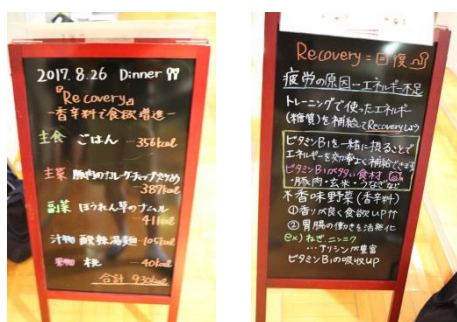 2017.8.26 Dinner
『Recovery』
-香辛料で食欲増進-
主食 ごはん …356kcal
主菜 豚肉のカレーケチャップ炒め
…387kcal
副菜 ほうれん草のナムル
…41kcal
汁物 酸辣湯麺…105kcal
果物 桃 …40kcal
合計 930kcal
Recovery=回復
疲労の原因…エネルギー不足
トレーニングで使ったエネルギー
(糖質)を補給してRecoveryしよう
ビタミンB1を一緒に摂ることで
エネルギーを効率よく補給できます
ビタミンB1が多い食材
・豚肉・玄米・うなぎなど
香味野菜(香辛料)
①香りが良く食欲UP↑↑
②胃腸の働きを活発化
ex)ねぎ.ニンニク
…アリシンが豊富
ビタミンB1の吸収UP